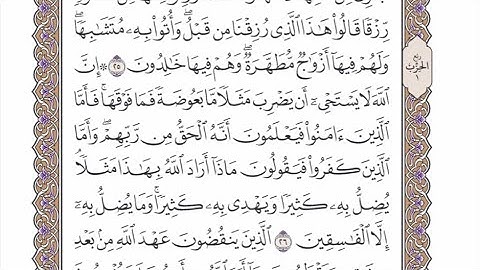 رِّزْقًا قَالُوا۟ هَٰذَا ٱلَّذِى رُزِقْنَا مِن قَبْلُ ۖ وَأُتُوا۟ بِهِۦ مُتَشَٰبِهًا ۖ
وَلَهُمْ فِيهَآ أَزْوَٰجٌ مُّطَهَّرَةٌ ۖ وَهُمْ فِيهَا خَٰلِدُونَ ٢٥ ۞ إِنَّ
ٱللَّهَ لَا يَسْتَحْىِۦٓ أَن يَضْرِبَ مَثَلًا مَّا بَعُوضَةً فَمَا فَوْقَهَا ۚ فَأَمَّا
ٱلَّذِينَ ءَامَنُوا۟ فَيَعْلَمُونَ أَنَّهُ ٱلْحَقُّ مِن رَّبِّهِمْ ۖ وَأَمَّا
ٱلَّذِينَ كَفَرُوا۟ فَيَقُولُونَ مَاذَآ أَرَادَ ٱللَّهُ بِهَٰذَا مَثَلًا ۘ
يُضِلُّ بِهِۦ كَثِيرًا وَيَهْدِى بِهِۦ كَثِيرًا ۚ وَمَا يُضِلُّ بِهِۦٓ
إِلَّا ٱلْفَٰسِقِينَ ٢٦ ٱلَّذِينَ يَنقُضُونَ عَهْدَ ٱللَّهِ مِنۢ بَعْدِ
ربع
الحزب